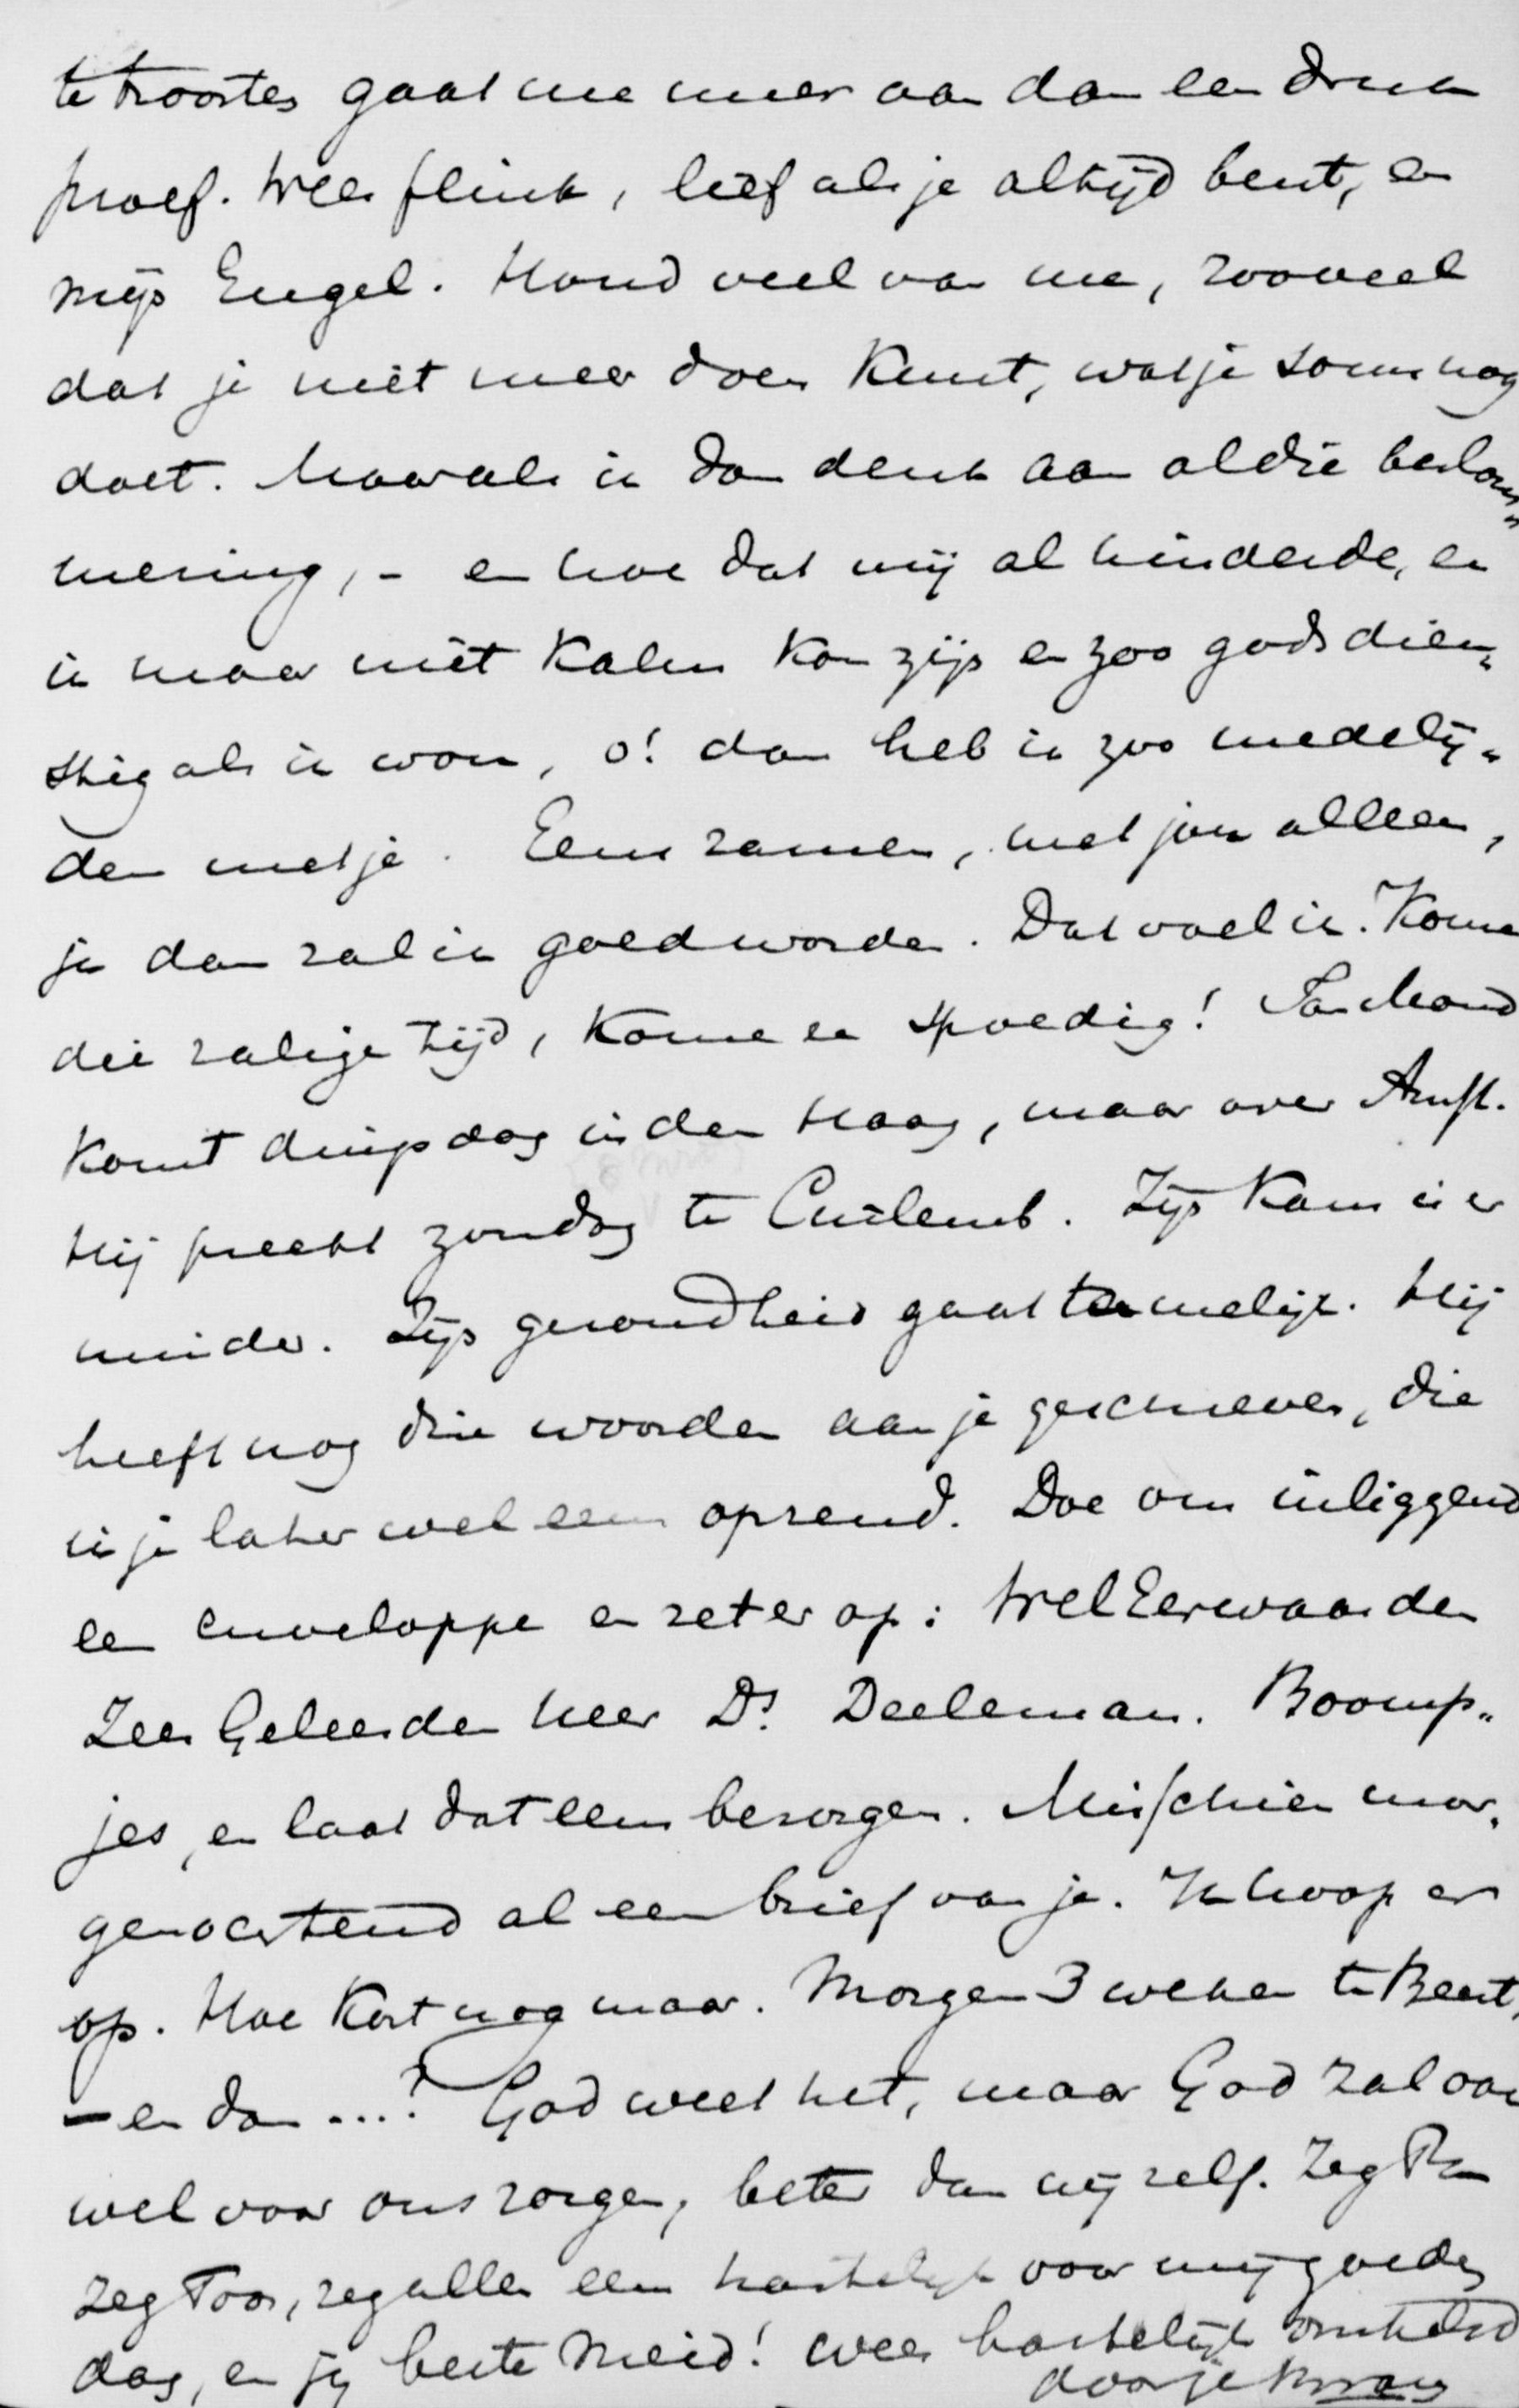 te troosten gaat me meer aan dan een druk
proef. Wees flink, lief als je altijd bent, en
mijn Engel. Houd veel van me, zooveel
dat je niet meer doen kunt, wat je soms nog
doet. Maar als ik dan denk aan al die beslom„
mering, – en hoe dat mij al hinderde, en
ik maar niet kalm kon zijn en zoo godsdien„
stig als ik wou, o! dan heb ik zoo medelij„
den met je. Eens samen, met jou alleen,
ja dan zal ik goed worden. Dat voel ik. Kome
die zalige tijd, kome ze spoedig! Pa
komt dinsdag in den Haag, maar over Amst.
Hij preekt zondag te Cuilemb. Zijn kans is er
minder. Zijn gezondheid gaat tamelijk. Hij
heeft nog drie woorden aan je geschreven, die
ik je later wel eens opzend. Doe om inliggend
een enveloppe en zet er op: WelEerwaarden
Zeer Geleerden heer Ds. Deeleman. Boomp„
jes, en laat dat eens bezorgen. Misschien mor„
genochtend al een brief van je. Ik hoop er
op. Hoe kort nog maar. Morgen 3 weken te Beest,
– en dan ....? God weet het, maar God zal ook
wel voor ons zorgen, beter dan wij zelf. Zeg Pa
zeg Toos, zeg allen een hartelijk voor mij goeden
dag, en jij beste Meid! wees hartelijk omhelsd
door je Bram